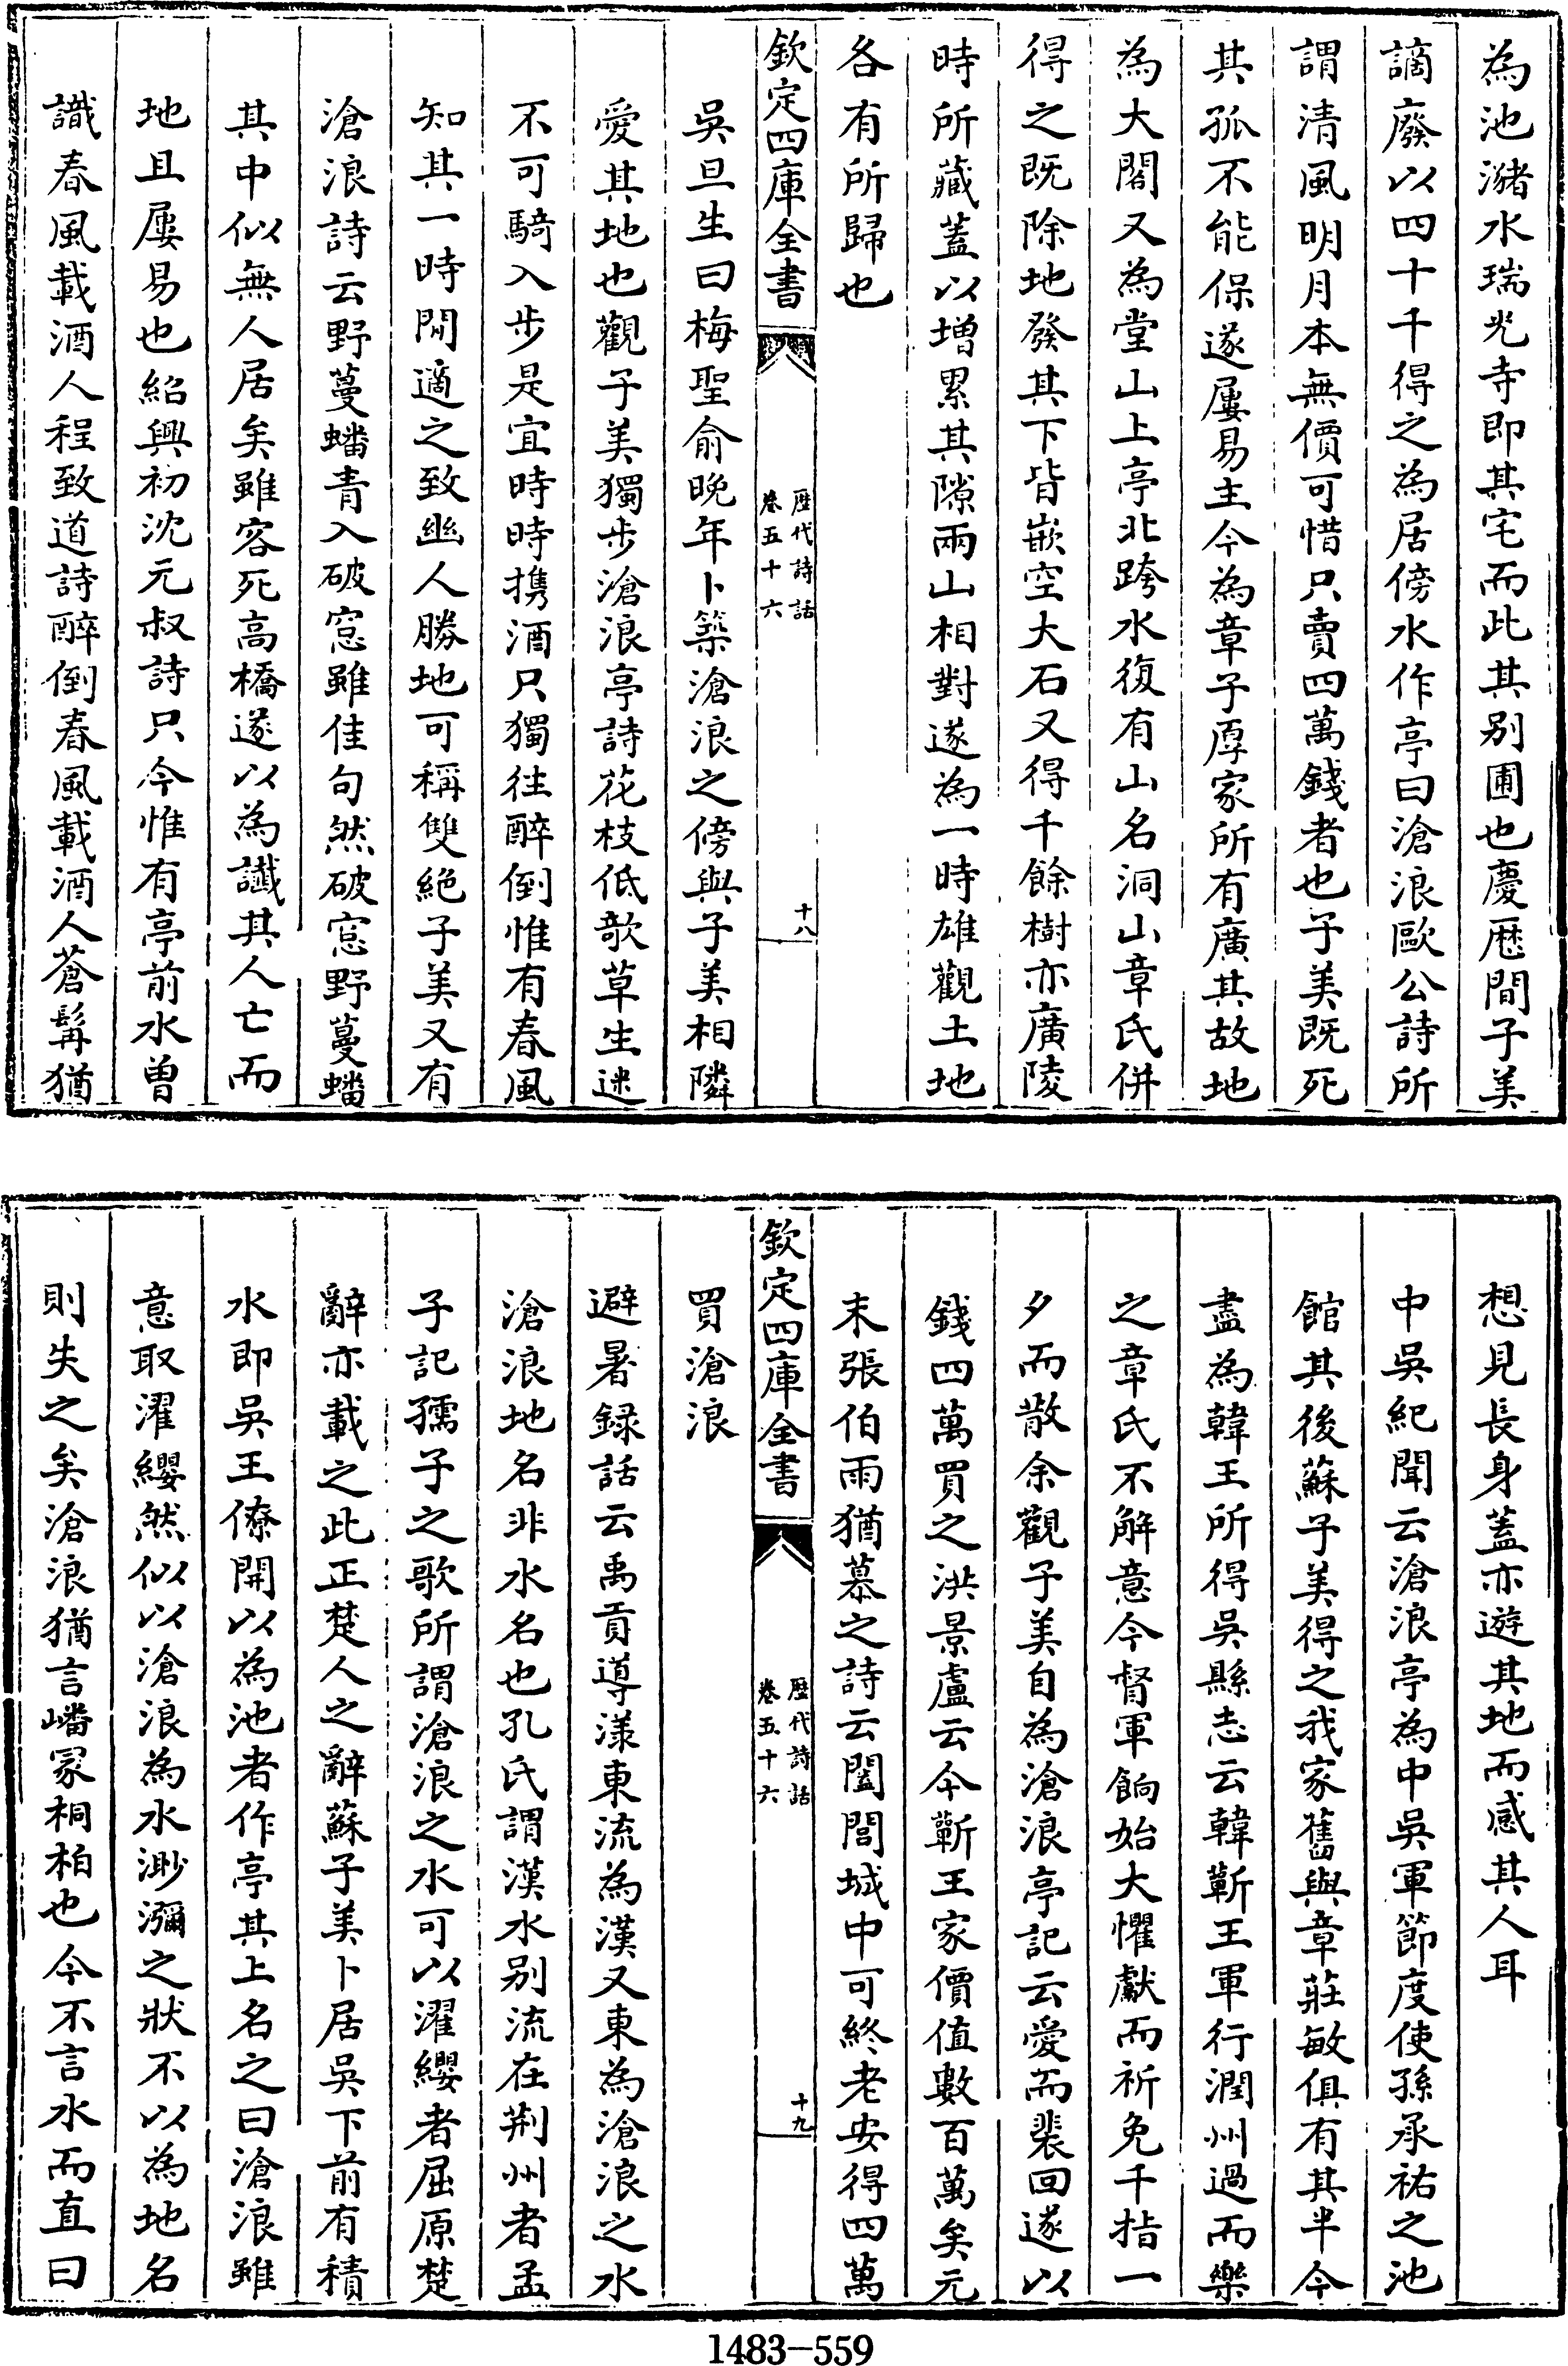 為池瀦水瑞光寺即其宅而此其别圃也慶厯間子美
謫廢以四十千得之為居傍水作亭曰滄浪歐公詩所
謂清風明月本無價可惜只賣四萬錢者也子美既死
其孤不能保遂屢易主今為章子厚家所有廣其故地
為大閣又為堂山上亭北跨水復有山名洞山章氏併
得之既除地發其下皆嵌空大石又得千餘樹亦廣陵
時所藏蓋以增累其隙兩山相對遂為一時雄觀土地
各有所歸也
欽定四庫全書
歴代詩話
卷五十六
十八
吳旦生曰梅聖俞晚年卜築滄浪之傍與子美相隣
愛其地也觀子美獨步滄浪亭詩花枝低欹草生迷
不可騎入步是宜時時携酒只獨往醉倒惟有春風
知其一時閒適之致幽人勝地可稱雙絶子美又有
滄浪詩云野蔓蟠青入破窓雖佳句然破窓野蔓蟠
其中似無人居矣雖客死高橋遂以為讖其人亡而
地且屢易也紹興初沈元叔詩只今惟有亭前水曽
識春風載酒人程致道詩醉倒春風載酒人蒼髯猶
想見長身蓋亦遊其地而感其人耳
中吳紀聞云滄浪亭為中吳軍節度使孫承祐之池
館其後蘇子美得之我家舊與章莊敏俱有其半今
盡為韓王所得吳縣志云韓蘄王軍行潤州過而樂
之章氏不解意今督軍餉始大懼獻而祈免千指一
夕而散余觀子美自為滄浪亭記云愛而裴回遂以
錢四萬買之洪景盧云今蘄王家價值數百萬矣元
末張伯雨猶慕之詩云闔閭城中可終老安得四萬
欽定四庫全書
歴代詩話
卷五十六
十九
買滄浪
避暑録話云禹貢導漾東流為漢又東為滄浪之水
滄浪地名非水名也孔氏謂漢水别流在荆州者孟
子記孺子之歌所謂滄浪之水可以濯纓者屈原楚
辭亦載之此正楚人之辭蘇子美卜居吳下前有積
水即吳王僚開以為池者作亭其上名之曰滄浪雖
意取濯纓然似以滄浪為水渺瀰之狀不以為地名
則失之矣滄浪猶言嶓冢桐柏也今不言水而直曰
1483-559